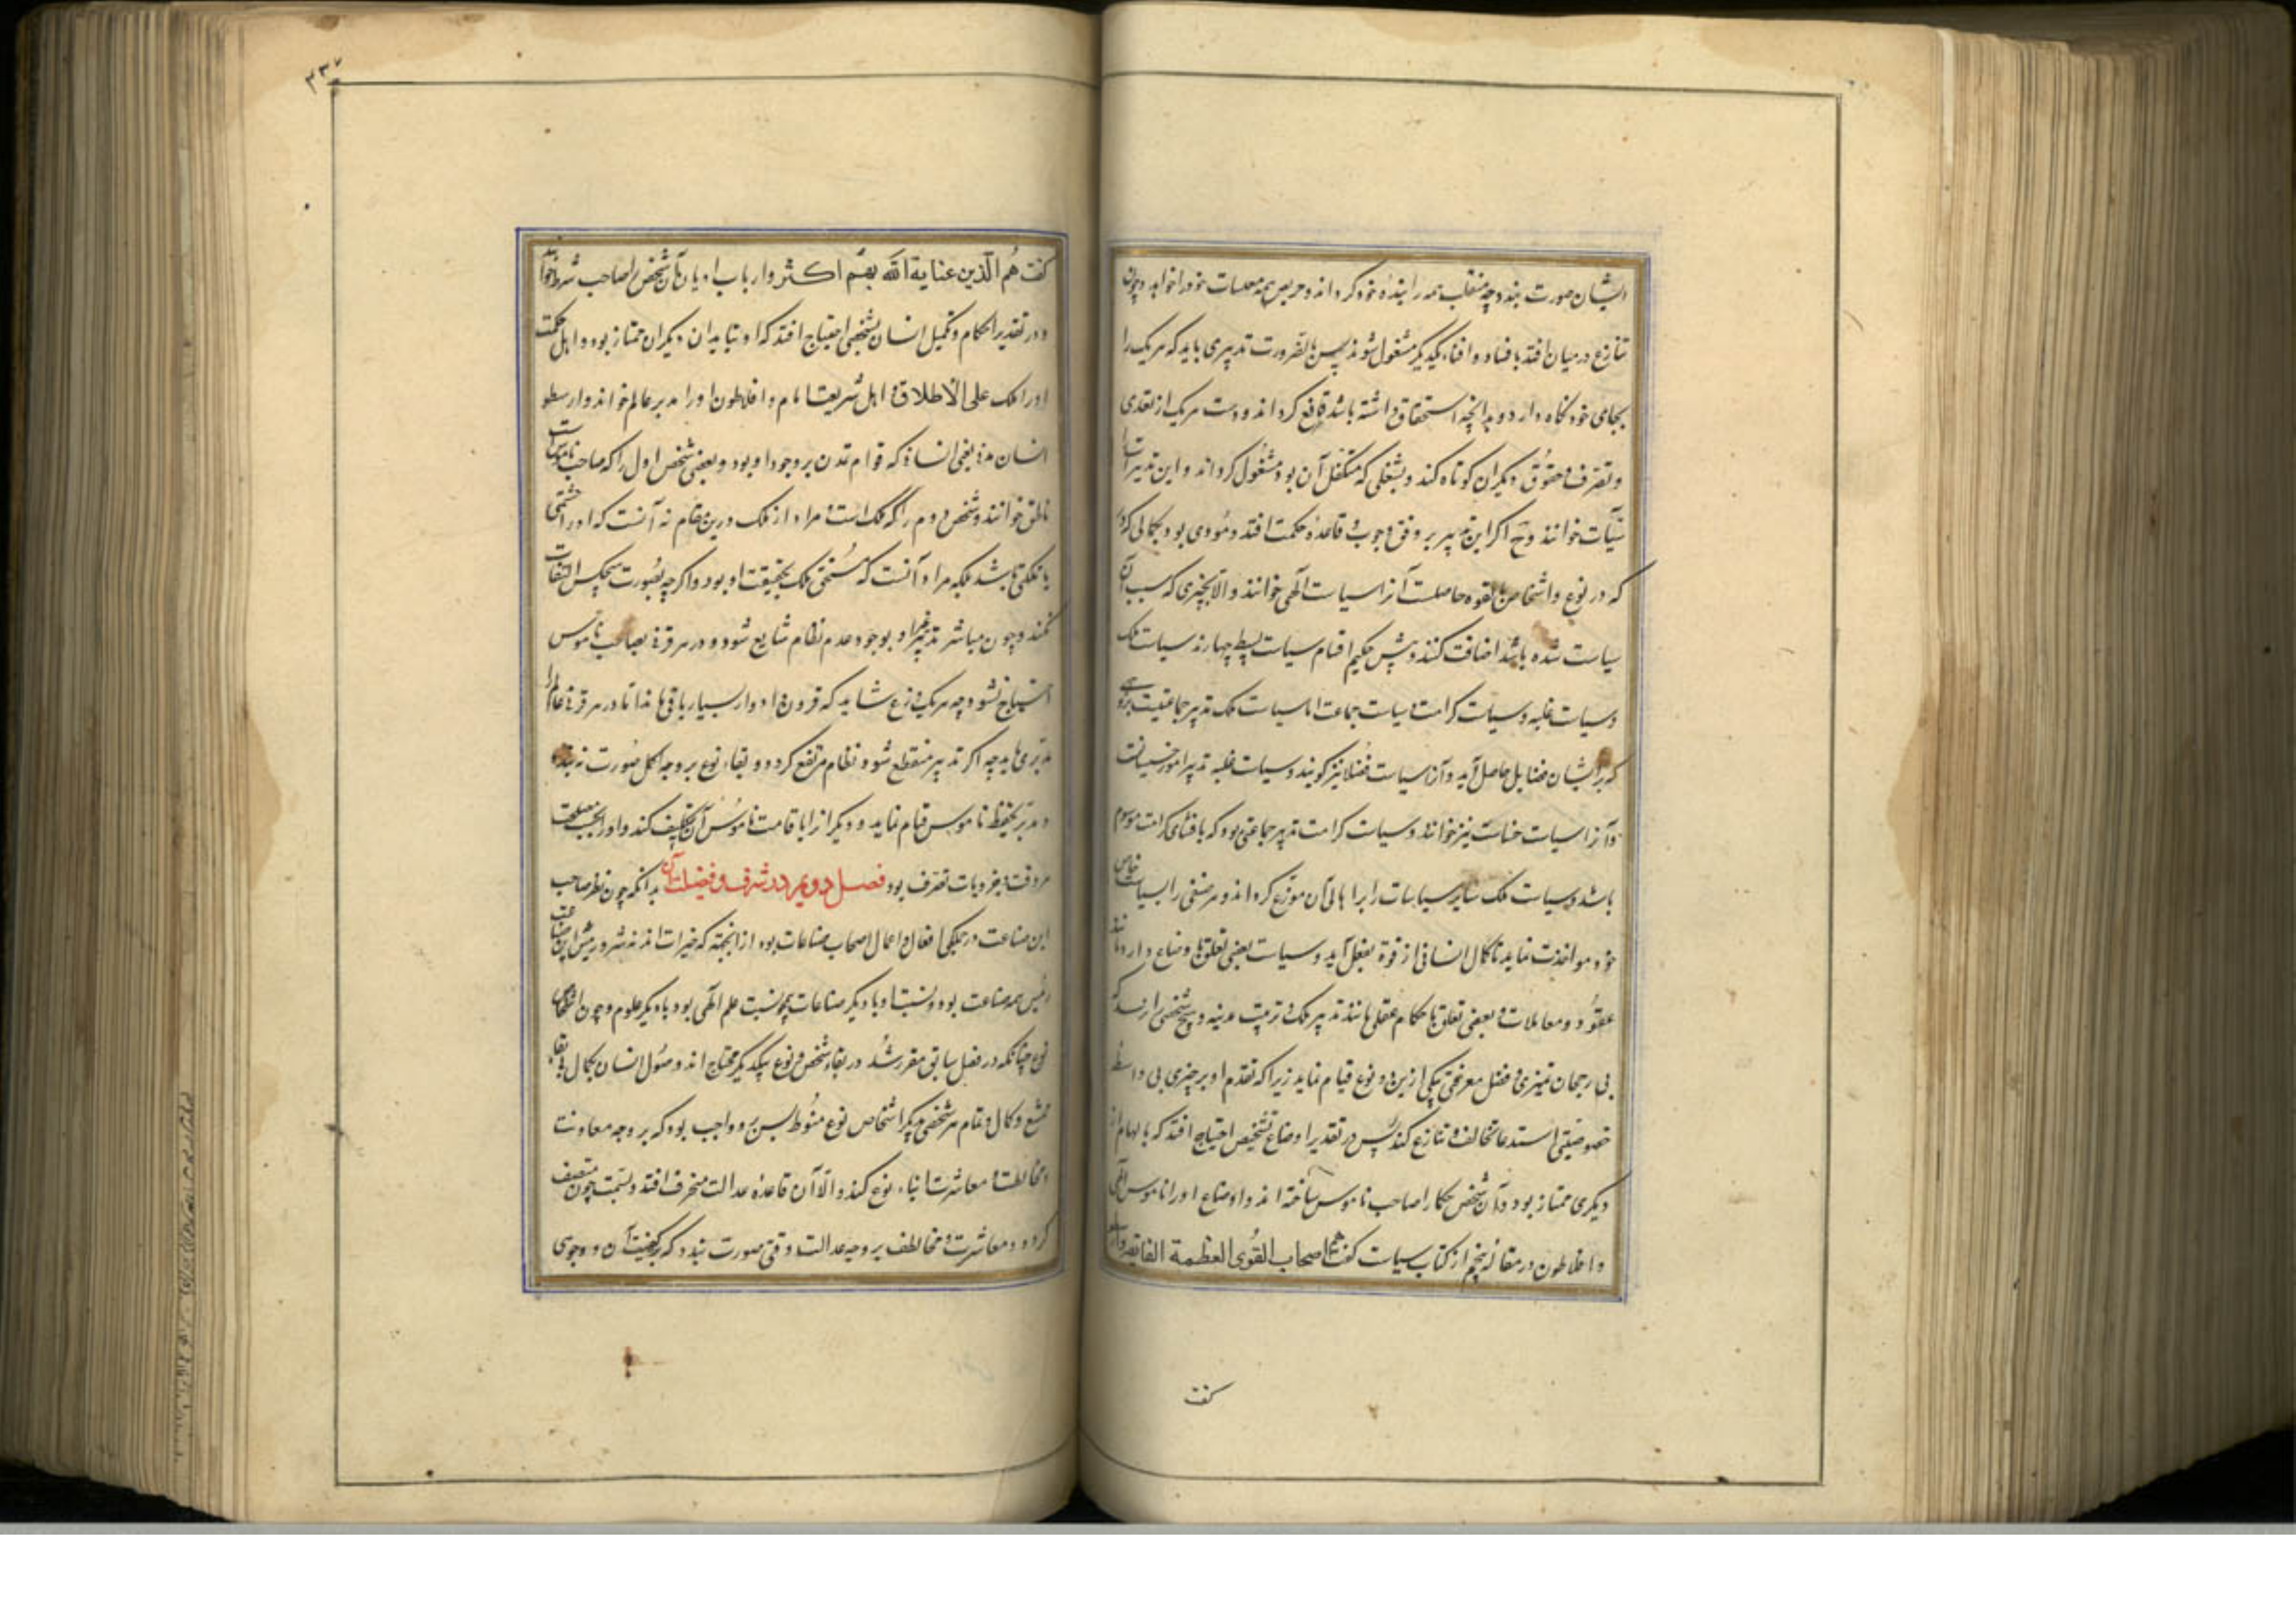 ایشان صورت بندد چه متغلب همه را بندهٔ خود گرداند و حریص همه مقتنیات خود را خواهد و چون
تنازع در میان افتد بافناد و افناء یکدیگر مشغول شوند پس بالضرورت تدبیری باید که هر یک را
بجای خود نگاه دارد و بدانچه استحقاق داشته باشد قانع گرداند و دست هر یک از تعدی
و تصرف حقوق دیگران کوتاه کند و بشغلی که متکفل آن بود مشغول گرداند و این تدبیر را
سیاست خوانند و ح اگر این تدبیر بر وفق وجوب و قاعدهٔ حکمت افتد و مؤدی بود بکمالی که
که در نوع و اشخاص بالقوه حاصلست آنرا سیاست الهی خوانند و الا بچیزی که سبب آن
سیاست شده باشد اضافت کنند و پیش حکیم اقسام سیاست بسیط چهارند سیاست ملک
و سیاست غلبه و سیاست کرامت و سیاست جماعت اما سیاست ملک تدبیر جماعتیست بر وجهی
که بر ایشان فضایل حاصل آید و آنرا سیاست فضلا نیز گویند و سیاست غلبه تدبیر امور خسیسانست
و آنرا سیاست خساست نیز خوانند و سیاست کرامت تدبیر جماعتی بود که باقتنای کرامت موسوم
باشد و سیاست ملک سایر سیاسات را بر اهالی آن موزع گرداند و هر صنفی را بسیاست خاص
خود مواخذت نماید تا کمال انسانی از قوة بفعل آید و سیاست بعضی تعلق باوضاع دارد مانند
عقود و معاملات و بعضی تعلق باحکام عقلی مانند تدبیر ملک و ترتیب مدینه و هیچ شخصی را نرسد که
بی رجحان تمیزی و فضل معرفتی بیکی ازین دو نوع قیام نماید زیرا که تقدم او بر غیری بی واسطهٔ
خصوصیتی استدعا تخالف و تنازع کند پس در تقدیر اوضاع بشخصی احتیاج افتد که بالهام از
دیگری ممتاز بود و آن شخص را حکما صاحب ناموس ساخته اند و اوضاع او را ناموس الهی
و افلاطون در مقالهٔ پنجم از کتاب سیاست گفت هم اصحاب القوی العظمة الفایقه و ارسطو
گفت
۳۳۷
گفت هم الذین عنایة الله بهم اکثر و ارباب ادیان آن شخص را صاحب شرع خوانند
و در تقدیر احکام و تکمیل انسان بشخصی احتیاج افتد که او بتاید از دیگران ممتاز بود و اهل حکمت
او را ملک علی الاطلاق و اهل شریعت امام و افلاطون او را مدبر عالم خواند و ارسطو
انسان مدنی یعنی انسانی که قوام تمدن بر وجود او بود و بعضی شخص اول را که صاحب ناموس است
ناطق خوانند و شخص دوم را که ملک است و مراد از ملک درین مقام نه آنست که او را حشمتی
یا مملکتی باشد بلکه مراد آنست که مستحق ملک بحقیقت او بود و اگرچه بصورت هیچکس التفات
نکند و چون مباشر تدبیر غیر او بود جور و عدم نظام شایع شود و در هر قرنی بصاحب ناموس
احتیاج نشود چه هر یک وضع شاید که قرون و ادوار بسیار باقی ماند اما در هر قرنی عالم را
مدبری باید چه اگر تدبیر منقطع شود نظام مرتفع گردد و بقاء نوع بر وجه اکمل صورت نبندد
و مدبر بحفظ ناموس قیام نماید و دیگرانرا باقامت ناموس آن تکلیف کند و او را بحسب مصلحت
هر وقت در جزویات تصرف بود فصل دویم در شرف و فضیلت آن بدانکه چون نظر صاحب
این صناعت در جملگی افعال و اعمال اصحاب صناعات بود از انجهته که خیرات اند نه شرور پس این صناعت
رئیس همه صناعت بود و نسبت او با دیگر صناعات چون نسبت علم الهی بود با دیگر علوم و چون اشخاص
نوع چنانکه در فصل سابق مقرر شد در بقاء شخص و نوع بیکدیگر محتاج اند و وصول انسان بکمال بی بقا
ممتنع و کمال و تمام هر شخصی بدیگر اشخاص نوع منوط پس برو واجب بود که بر وجه معاونت
و مخالطت و معاشرت ابناء نوع کند و الا آن قاعدهٔ عدالت منحرف افتد و بسمت جور متصف
گردد و معاشرت و مخالطت بر وجه عدالت وقتی صورت بندد که بر کیفیت آن و وجوهی